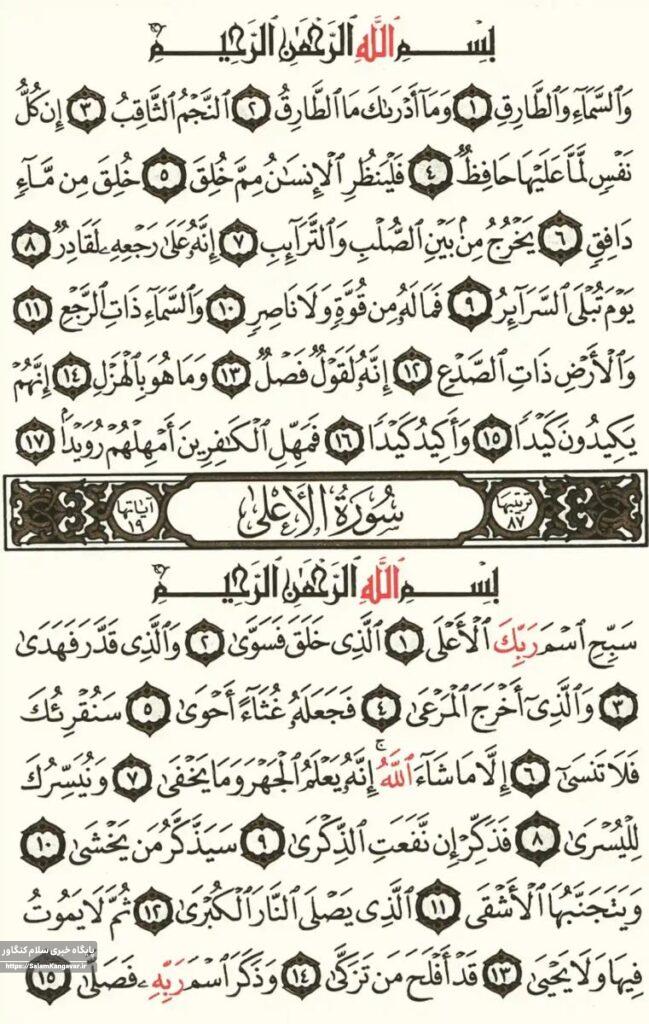 بِسْمِ اللَّهِ الرَّحْمَٰنِ الرَّحِيمِ
وَالسَّمَاءِ وَالطَّارِقِ ۝١ وَمَا أَدْرَاكَ مَا الطَّارِقُ ۝٢ النَّجْمُ الثَّاقِبُ ۝٣ إِن كُلُّ
نَفْسٍ لَّمَّا عَلَيْهَا حَافِظٌ ۝٤ فَلْيَنظُرِ الْإِنسَانُ مِمَّ خُلِقَ ۝٥ خُلِقَ مِن مَّاءٍ
دَافِقٍ ۝٦ يَخْرُجُ مِن بَيْنِ الصُّلْبِ وَالتَّرَائِبِ ۝٧ إِنَّهُ عَلَىٰ رَجْعِهِ لَقَادِرٌ ۝٨
يَوْمَ تُبْلَى السَّرَائِرُ ۝٩ فَمَا لَهُ مِن قُوَّةٍ وَلَا نَاصِرٍ ۝١٠ وَالسَّمَاءِ ذَاتِ الرَّجْعِ ۝١١
وَالْأَرْضِ ذَاتِ الصَّدْعِ ۝١٢ إِنَّهُ لَقَوْلٌ فَصْلٌ ۝١٣ وَمَا هُوَ بِالْهَزْلِ ۝١٤ إِنَّهُمْ
يَكِيدُونَ كَيْدًا ۝١٥ وَأَكِيدُ كَيْدًا ۝١٦ فَمَهِّلِ الْكَافِرِينَ أَمْهِلْهُمْ رُوَيْدًا ۝١٧
ترتيبها ٨٧ سُورَةُ الْأَعْلَىٰ آياتها ١٩
بِسْمِ اللَّهِ الرَّحْمَٰنِ الرَّحِيمِ
سَبِّحِ اسْمَ رَبِّكَ الْأَعْلَى ۝١ الَّذِي خَلَقَ فَسَوَّىٰ ۝٢ وَالَّذِي قَدَّرَ فَهَدَىٰ
۝٣ وَالَّذِي أَخْرَجَ الْمَرْعَىٰ ۝٤ فَجَعَلَهُ غُثَاءً أَحْوَىٰ ۝٥ سَنُقْرِئُكَ
فَلَا تَنسَىٰ ۝٦ إِلَّا مَا شَاءَ اللَّهُ ۚ إِنَّهُ يَعْلَمُ الْجَهْرَ وَمَا يَخْفَىٰ ۝٧ وَنُيَسِّرُكَ
لِلْيُسْرَىٰ ۝٨ فَذَكِّرْ إِن نَّفَعَتِ الذِّكْرَىٰ ۝٩ سَيَذَّكَّرُ مَن يَخْشَىٰ ۝١٠
وَيَتَجَنَّبُهَا الْأَشْقَى ۝١١ الَّذِي يَصْلَى النَّارَ الْكُبْرَىٰ ۝١٢ ثُمَّ لَا يَمُوتُ
فِيهَا وَلَا يَحْيَىٰ ۝١٣ قَدْ أَفْلَحَ مَن تَزَكَّىٰ ۝١٤ وَذَكَرَ اسْمَ رَبِّهِ فَصَلَّىٰ ۝١٥
پایگاه خبری سلام کنگاور
https://SalamKangavar.ir